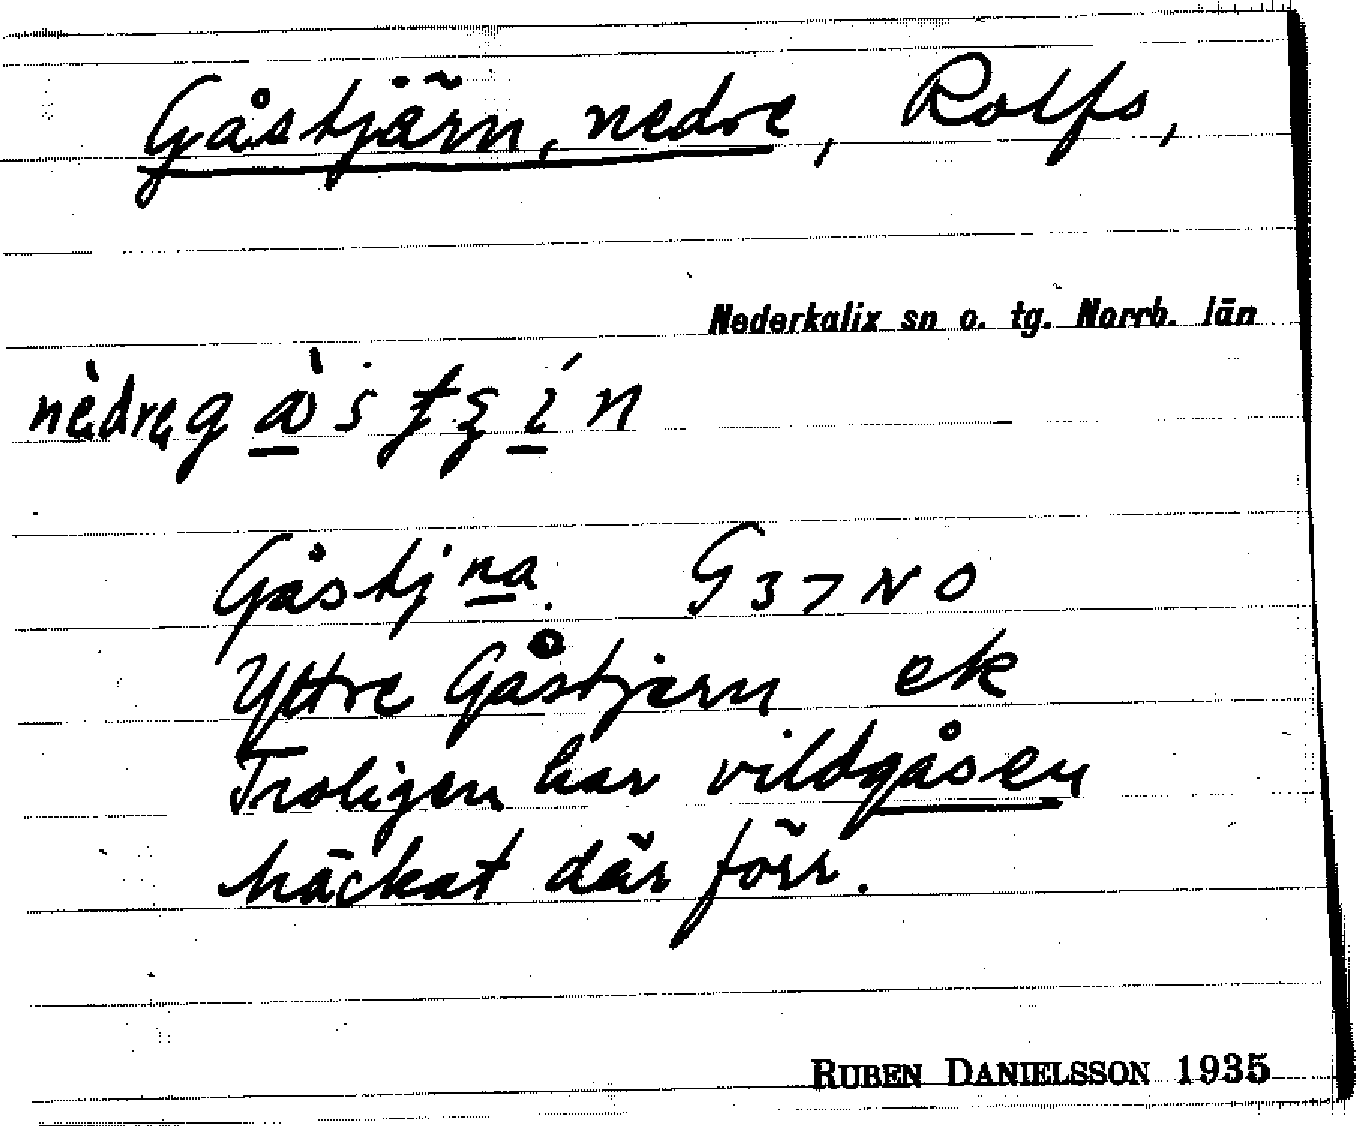 Gåstjärn, nedre, Rolfs,
Nederkalix sn o. tg. Norrb. län
Gåstjna. G37NO
Yttre Gåstjern ek
Troligen har vildgåsen
häckat där förr.
RUBEN DANIELSSON 1935